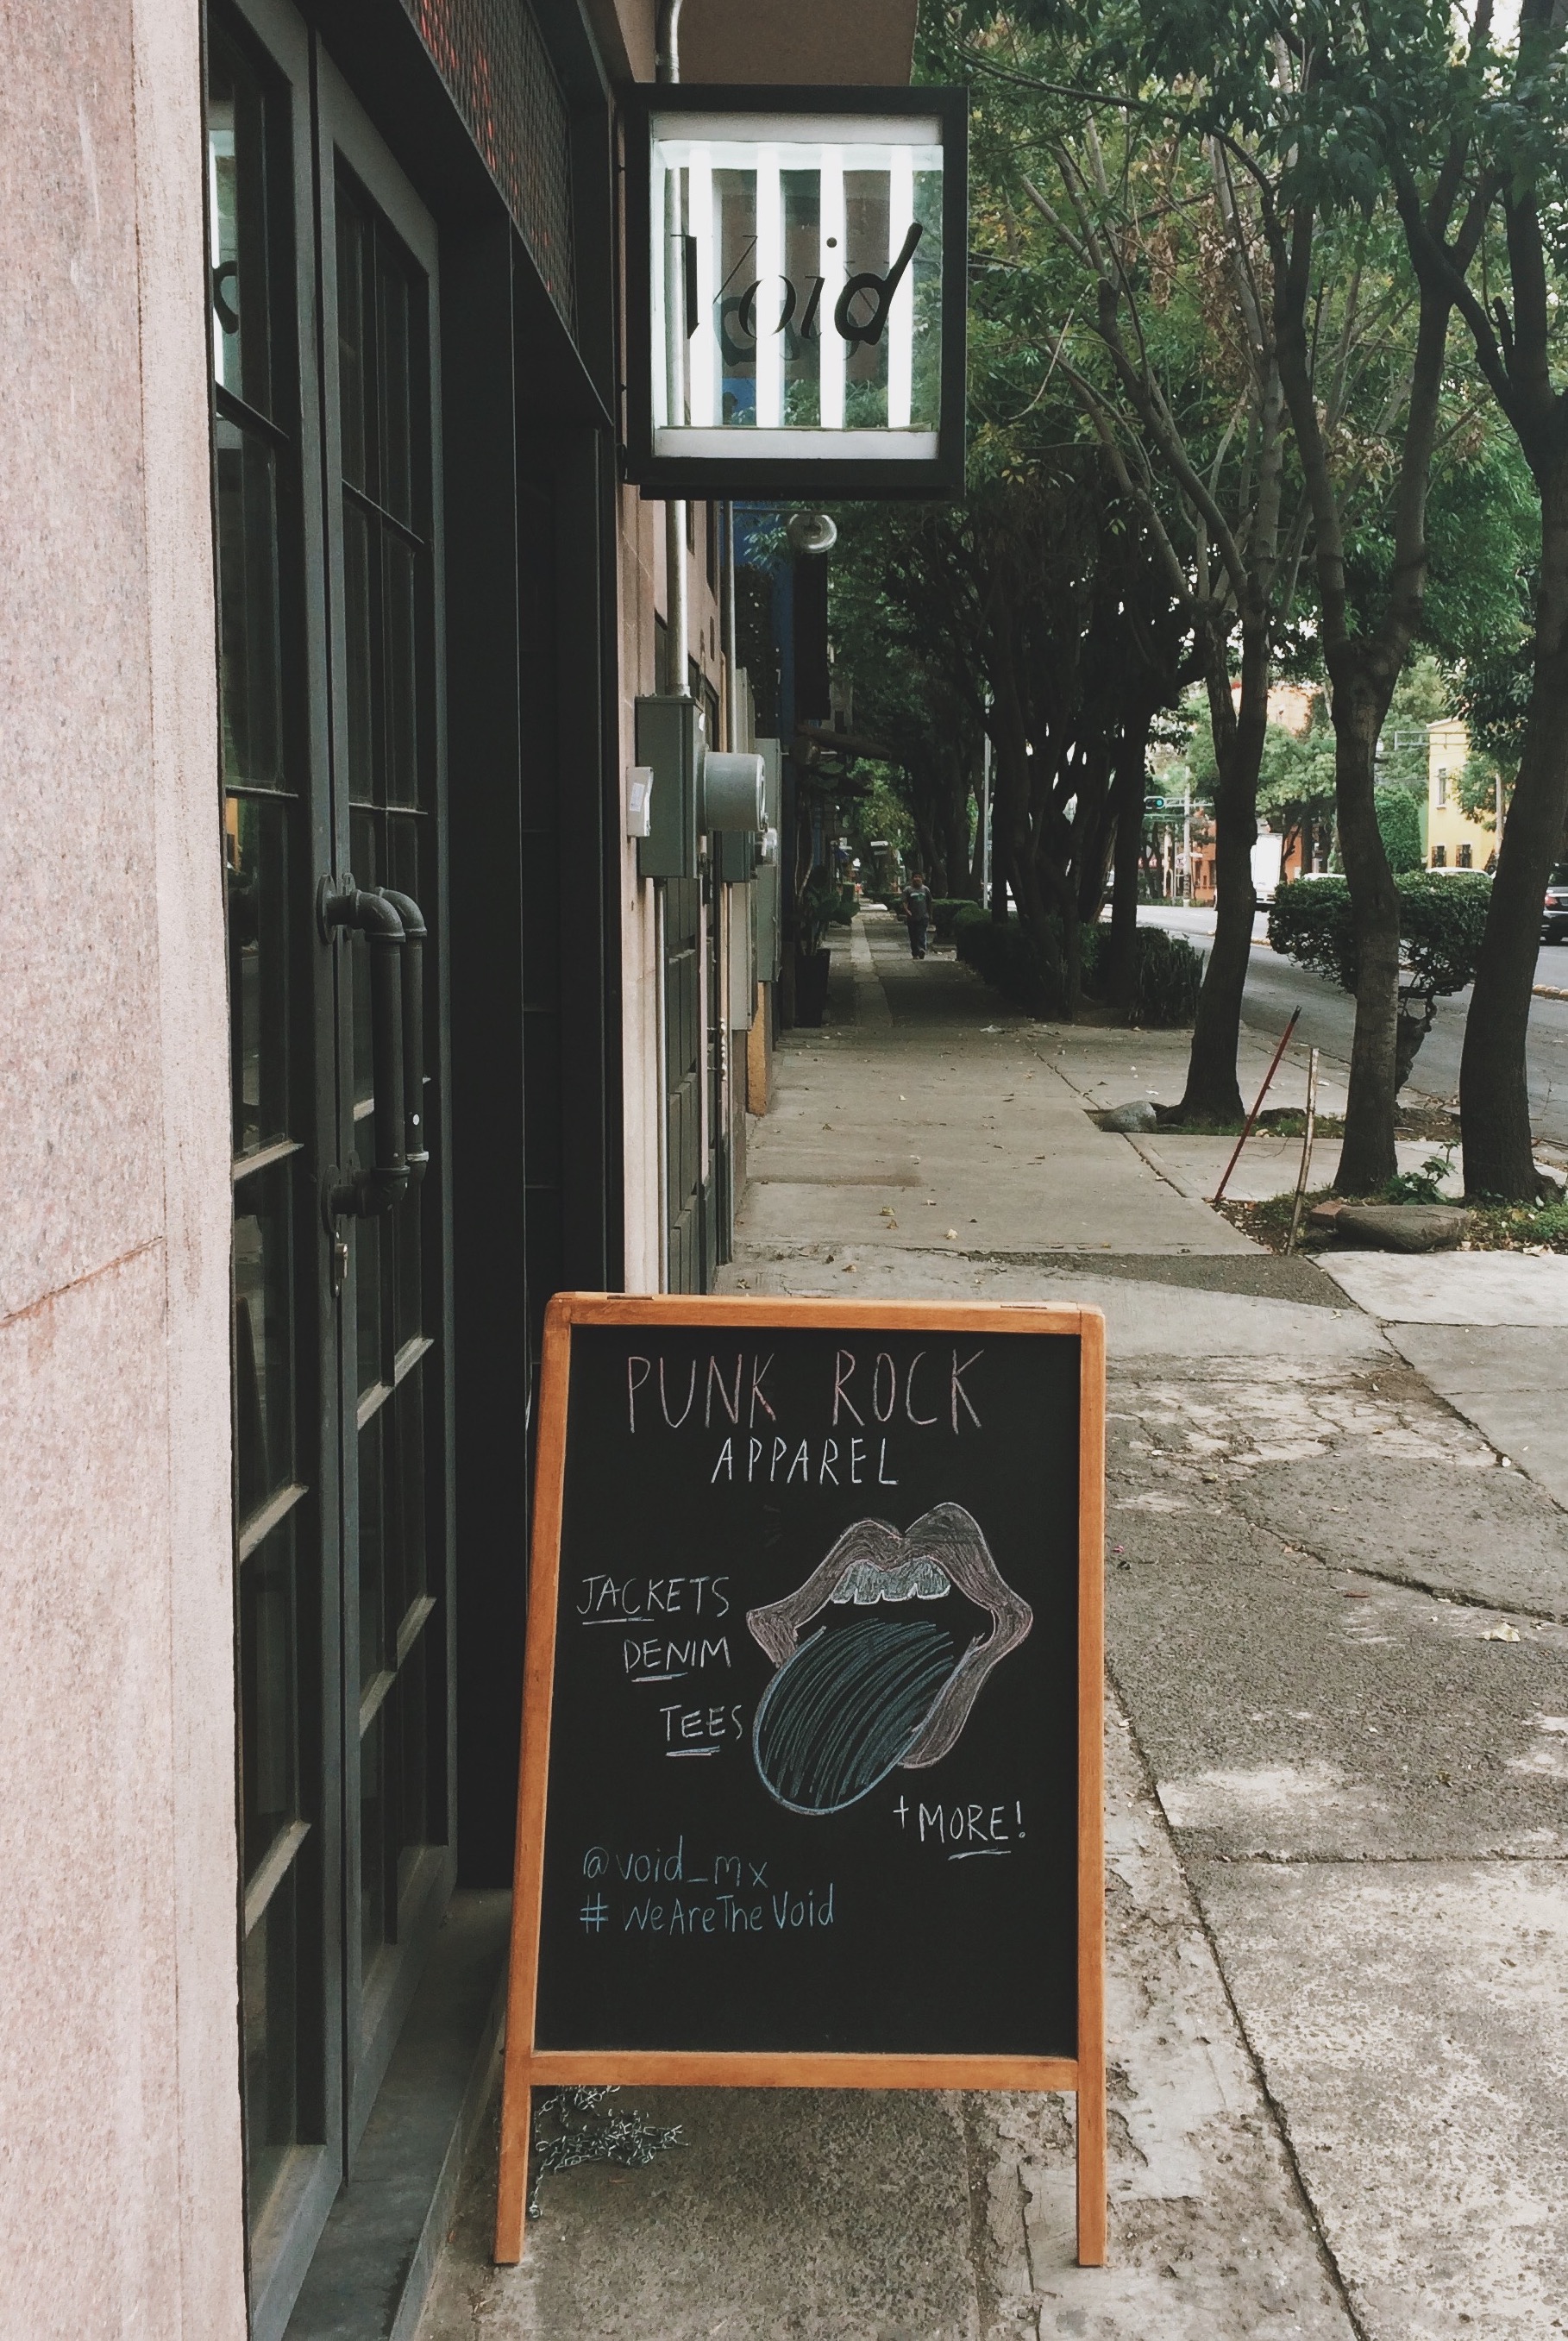 Void
PUNK ROCK
APPAREL
JACKETS
DENIM
TEES
+MORE!
@void_mx
#WeAreTheVoid